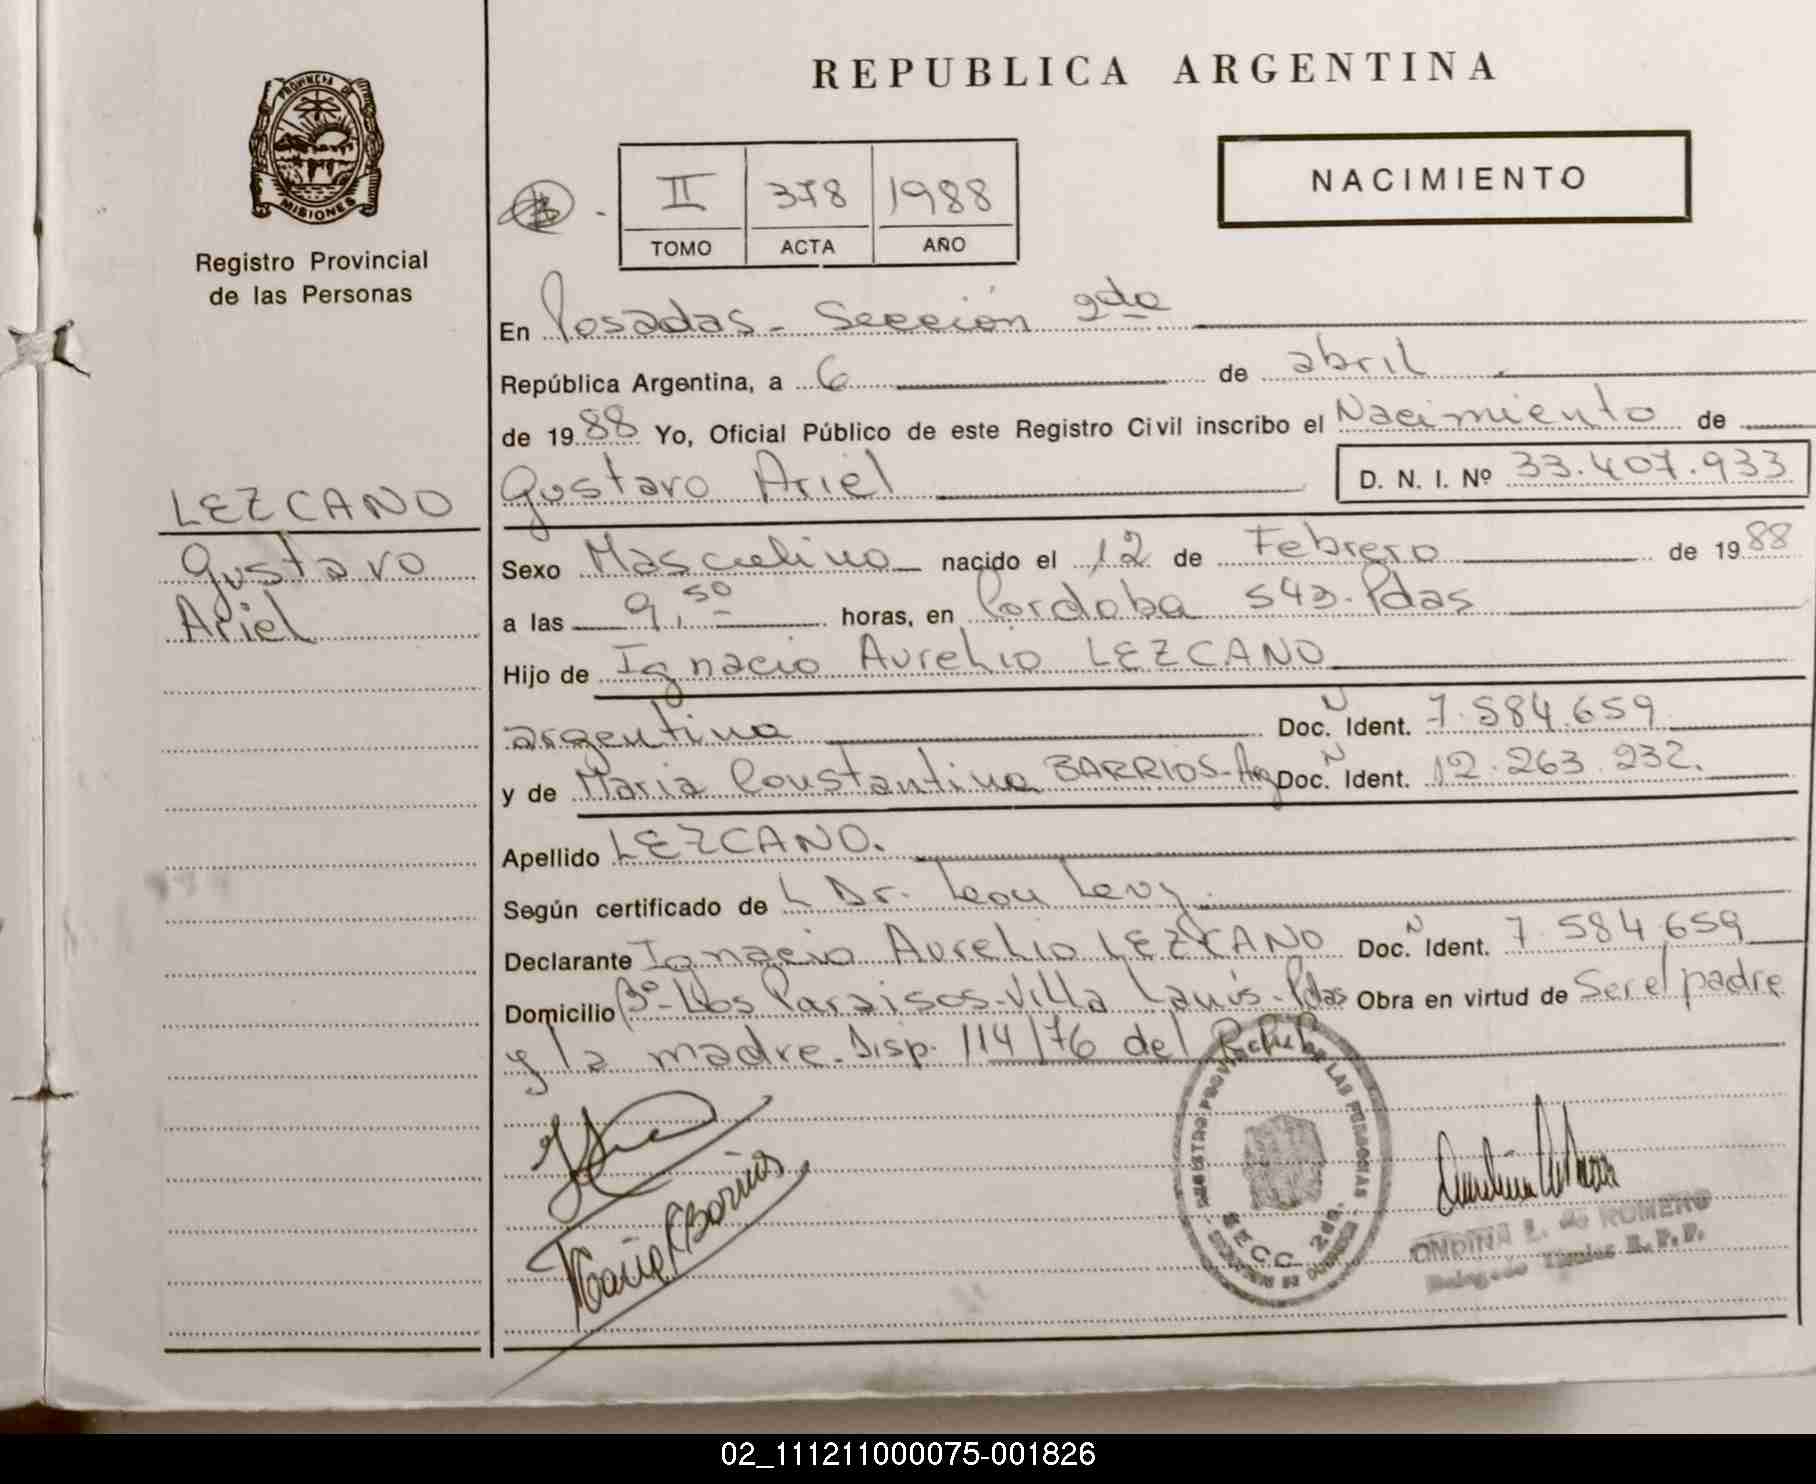 REPUBLICA ARGENTINA
PROVINCIA DE
MISIONES
Registro Provincial
de las Personas
NACIMIENTO
II 378 1988
TOMO ACTA AÑO
En Posadas - Sección 2da
República Argentina, a 6 de abril
de 1988 Yo, Oficial Público de este Registro Civil inscribo el Nacimiento de
Gustavo Ariel D. N. I. Nº 33.407.933
LEZCANO
Gustavo
Ariel
Sexo Masculino nacido el 12 de Febrero de 1988
a las 9,50 horas, en Córdoba 543. Pdas
Hijo de Ignacio Aurelio LEZCANO
argentino Doc. Ident. N 7.584.659
y de Maria Constantina BARRIOS-Arg Doc. Ident. N 12.263.232.
Apellido LEZCANO.
Según certificado de L Dr. Leon Levy.
Declarante Ignacio Aurelio LEZCANO Doc. Ident. N 7.584.659
Domicilio Bº-Los Paraisos-Villa Lanús-Pdas Obra en virtud de Ser el padre
y la madre. Disp. 114/76 del
REGISTRO PROVINCIAL DE LAS PERSONAS
SECC. 2da.
ONDINA E. de ROMERO
Delegado Titular R.P.P.
02_111211000075-001826